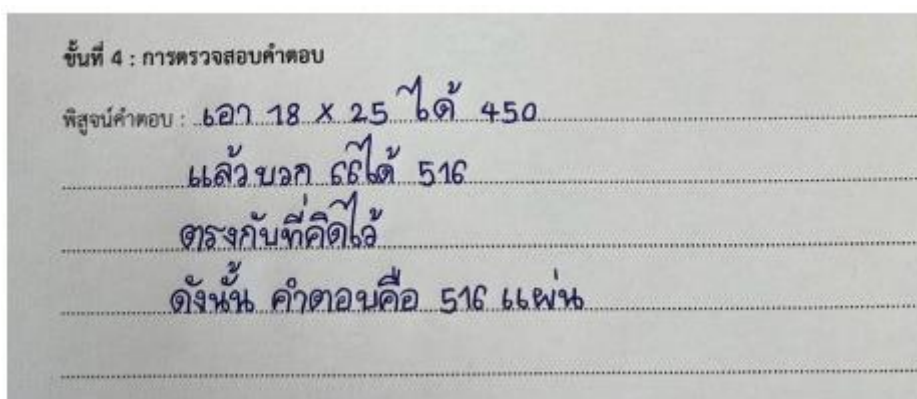 ขั้นที่ 4 : การตรวจสอบคำตอบ
พิสูจน์คำตอบ : เอา 18 x 25 ได้ 450
แล้วบวก 66ได้ 516
ตรงกับที่คิดไว้
ดังนั้น คำตอบคือ 516 แผ่น